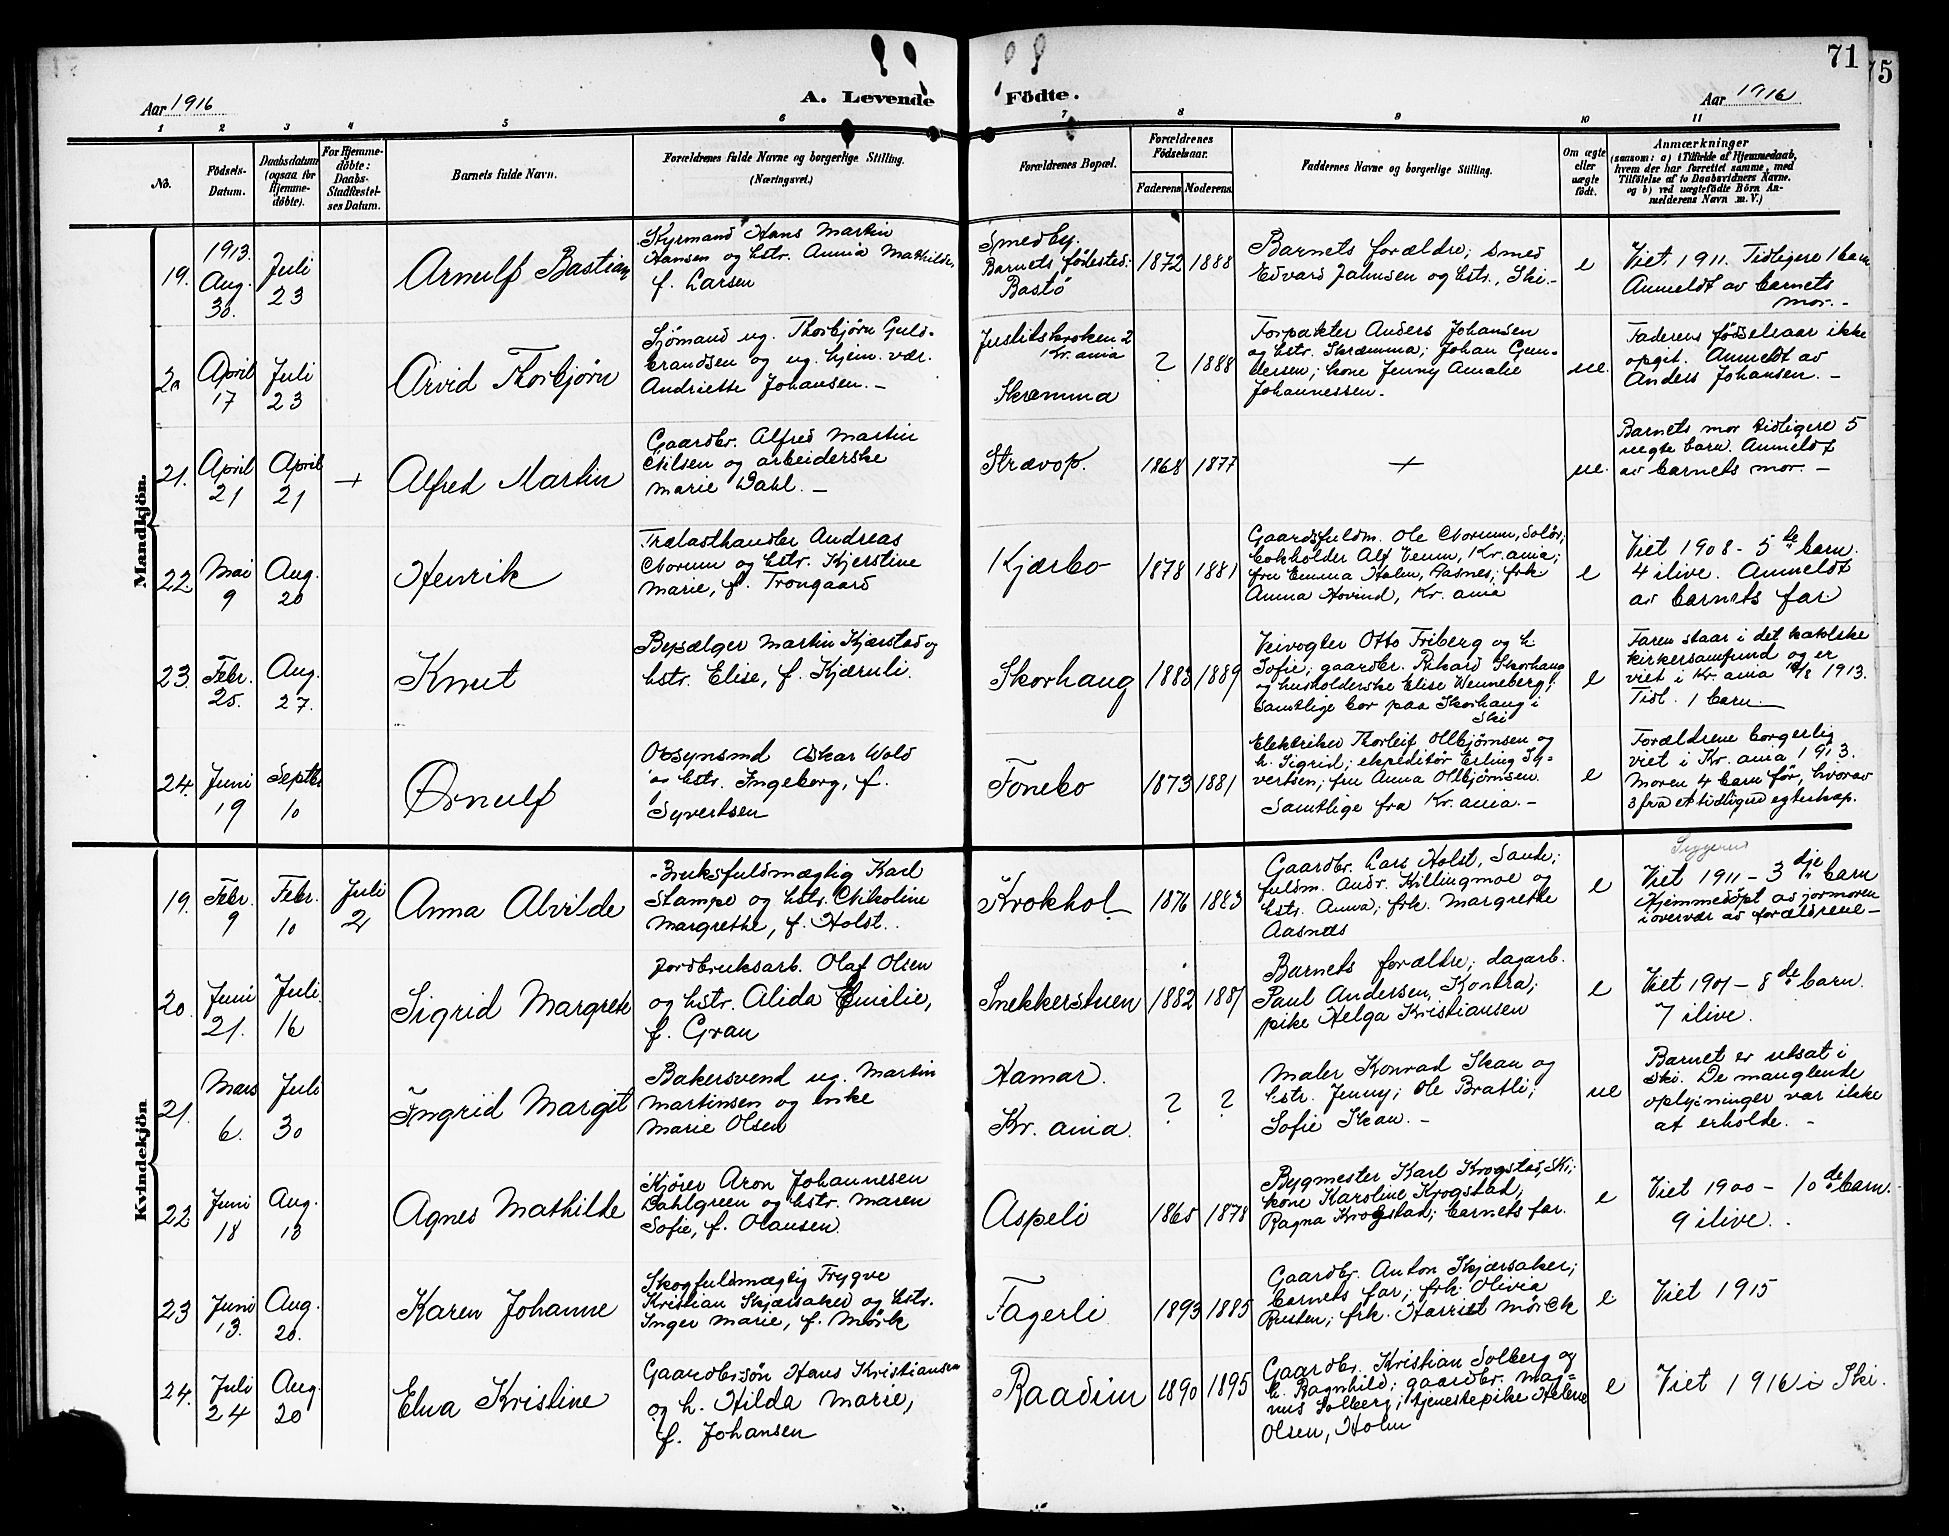 71
75
Aar 1916
A. Levende Födte.
Aar 1916
1 2 3 4 5 6 7 8 9 10 11
No.
Födsels-
Datum.
Daabsdatum
(ogsaa for
Hjemme-
döbte).
For Hjemme-
döbte:
Daabs-
Stadfæstel-
ses Datum.
Barnets fulde Navn.
Forældrenes fulde Navne og borgerlige Stilling.
(Næringsvei.)
Forældrenes Bopæl.
Forældrenes
Födselsaar.
Faderens Moderens
Faddernes Navne og borgerlige Stilling.
Om ægte
eller
uægte
födt.
Anmærkninger
(saasom: a) i Tilfælde af Hjemmedaab,
hvem der har forrettet samme, med
Tilföielse af to Daabsvidners Navne.
og b) ved uægtefödte Börn An-
melderens Navn m. V.)
Mandkjön.
19.
1913.
Aug.
30.
Juli
23
Arnulf Bastian
Styrmand Hans Martin
Hansen og hstr. Anna Mathilde,
f. Larsen
Smedby.
Barnets fødested:
Bastö
1872 1888
Barnets forældre; smed
Edvard Jahnsen og hstr., Ski.-
e
Viet. 1911. Tidligere 1 barn
Anmeldt av barnets
mor.-
20
April
17
Juli
23
Arvid Thorbjørn
Sjømand ug. Thorbjørn Guld-
brandsen og ug. hjem. vær.
Andriette Johansen.-
Justitskroken 2
Kr.ania
Skræmma
? 1888
Forpakter Anders Johansen
og hstr. Skræmma; Johan Gun-
dersen; kone Jenny Amalie
Johannessen.
ue.
Faderens fødselsaar ikke
opgit. Anmeldt av
Anders Johansen.-
21.
April
21
April
21
+
Alfred Martin
Gaardbr. Alfred Martin
Nilsen og arbeiderske
Marie Dahl.-
Strævop.
1868 1877
+
ue.
Barnets mor tidligere 5
uegte barn. Anmeldt
av barnets mor.-
22.
Mai
9
Aug.
20
Henrik
Trælasthandler Andreas
Norum og hstr. Kjerstine
Marie, f. Trongaard
Kjærbo
1878 1881
Gaardsfuldm. Ole Norum, Solör;
bokholder Alf Venm, Kr.ania;
fru Emma Holm, Aasnes; frk
Anna Hovind, Kr.ania
e
Viet 1908 - 5te barn.
4 ilive. Anmeldt
av barnets far.
23.
Febr.
25.
Aug.
27.
Knut
Bysælger Martin Kjærstad og
hstr. Elise, f. Kjæruli.
Skorhaug
1883 1889
Veivogter Otto Friberg og h.
Sofie; gaardbr. Rikard Skorhaug
og husholderske Elise Wenneberg;
samtlige bor paa Skorhaug i
Ski
e
Faren staar i det katolske
kirkesamfund og er
viet i Kr.ania /8 1913.
Tidl. 1 barn.
24.
Juni
19
Septbr.
10
Ørnulf
Opsynsmd Oskar Wold
og hstr. Ingeborg, f.
Syvertsen
Tonebo
1873 1881
Elektriker Thorleif Olbjørnsen og
h. Sigrid; ekspeditör Erling Sy-
vertsen; fru Anna Olbjørnsen.
Samtlige fra Kr.ania.-
e
Forældrene borgerlig
viet i Kr.ania 1913.
Moren 4 barn før, hvorav
3 fra et tidligere egteskap.
Kvindekjön
19.
Febr.
9
Febr.
10
Juli
2
Anna Alvilde
Bruksfuldmægtig Karl
Stampe og hstr. Nikoline
Margrethe, f. Holst.
Krokhol
1876 1883
Gaardbr. Lars Holst, Sande;
fuldm. Andr. Killingmoe og
hstr. Anna; frk. Margrethe
Aasnæs
e
Viet 1911 - 3dje barn
Hjemmedøpt av jormoren
i overvær av forældrene-
20.
Juni
21.
Juli
16
Sigrid Margrete
Jordbruksarb. Olaf Olsen
og hstr. Alida Emilie,
f. Gran
Snekkerstuen
1882 1881
Barnets forældre; dagarb.
Paul Andersen, Kontra;
pike Helga Kristiansen
e
Viet 1901 - 8de barn.
7 ilive.
21.
Mars
6.
Juli
30
Ingrid Margit
Bakersvend ug. Martin
Martinsen og enke
Marie Olsen
Hamar.
Kr.ania.
? ?
Maler Konrad Skau og
hstr. Jenny; Ole Bratli;
Sofie Skau.-
ue
Barnet er utsat i
Ski. De manglende
oplysninger var ikke
at erholde.-
22
Juni
18
Aug.
13
Agnes Mathilde
Kjører Aron Johannesen
Dahlgreen og hstr. Maren
Sofie, f. Olausen.
Aspeli
1865 1878
Bygmester Karl Krogstad, Ski;
kone Karoline Krogstad;
Ragna Krogstad; barnets far.
e
Viet 1900 - 10de barn.
9 ilive.
23
Juni
13.
Aug.
20.
Karen Johanne
Skogfuldmægtig Trygve
Kristian Skjærsaker og hstr.
Inger Marie, f. Mörk
Fagerli
1893 1885
Gaardbr. Anton Skjærsaker;
barnets far; frk. Olivia
Rusten; frk. Harriet Mörck
e
Viet 1915
24.
Juli
24
Aug.
20
Elna Kristine
Gaardbr.søn Hans Kristiansen
og h. Hilda Marie,
f. Johansen
Raadim
1890 1895
Gaardbr. Kristian Solberg og
h. Ragnhild; gaardbr. Mag-
nus Solberg; tjenestepike Helene
Olsen, Holm
e
Viet 1916 i Ski.